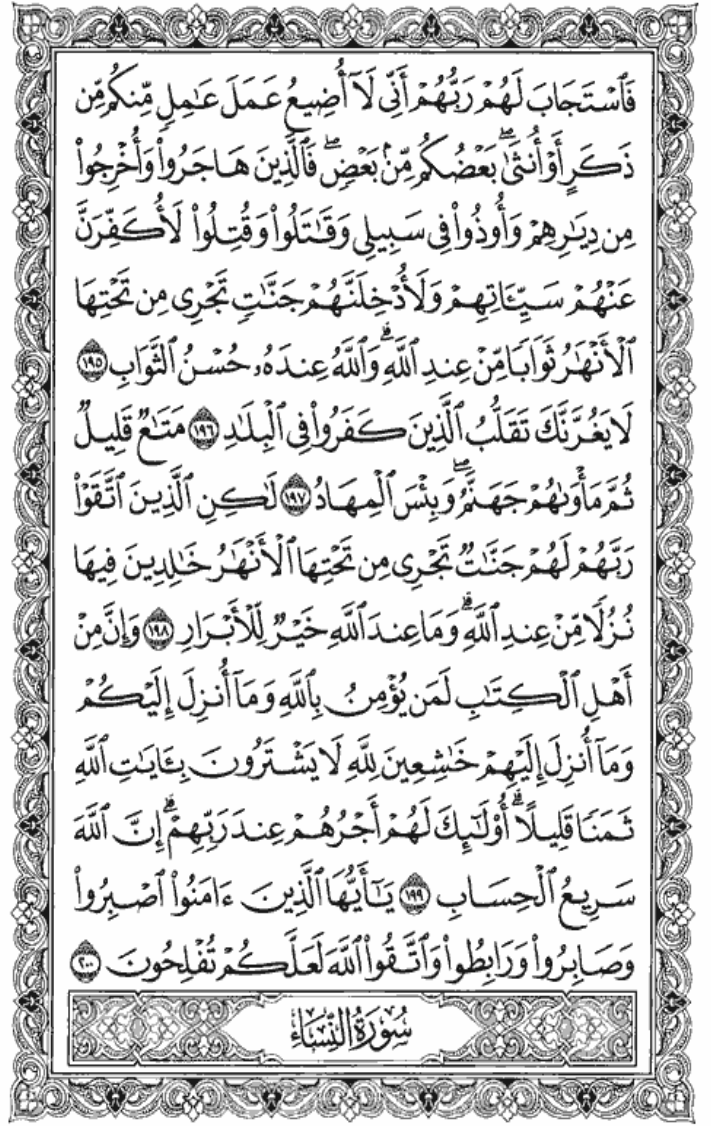 فَٱسْتَجَابَ لَهُمْ رَبُّهُمْ أَنِّى لَآ أُضِيعُ عَمَلَ عَٰمِلٍ مِّنكُم مِّن
ذَكَرٍ أَوْ أُنثَىٰ ۖ بَعْضُكُم مِّنۢ بَعْضٍ ۖ فَٱلَّذِينَ هَاجَرُوا۟ وَأُخْرِجُوا۟
مِن دِيَٰرِهِمْ وَأُوذُوا۟ فِى سَبِيلِى وَقَٰتَلُوا۟ وَقُتِلُوا۟ لَأُكَفِّرَنَّ
عَنْهُمْ سَيِّـَٔاتِهِمْ وَلَأُدْخِلَنَّهُمْ جَنَّٰتٍ تَجْرِى مِن تَحْتِهَا
ٱلْأَنْهَٰرُ ثَوَابًا مِّنْ عِندِ ٱللَّهِ ۗ وَٱللَّهُ عِندَهُۥ حُسْنُ ٱلثَّوَابِ ١٩٥
لَا يَغُرَّنَّكَ تَقَلُّبُ ٱلَّذِينَ كَفَرُوا۟ فِى ٱلْبِلَٰدِ ١٩٦ مَتَٰعٌ قَلِيلٌ
ثُمَّ مَأْوَىٰهُمْ جَهَنَّمُ ۖ وَبِئْسَ ٱلْمِهَادُ ١٩٧ لَٰكِنِ ٱلَّذِينَ ٱتَّقَوْا۟
رَبَّهُمْ لَهُمْ جَنَّٰتٌ تَجْرِى مِن تَحْتِهَا ٱلْأَنْهَٰرُ خَٰلِدِينَ فِيهَا
نُزُلًا مِّنْ عِندِ ٱللَّهِ ۗ وَمَا عِندَ ٱللَّهِ خَيْرٌ لِّلْأَبْرَارِ ١٩٨ وَإِنَّ مِنْ
أَهْلِ ٱلْكِتَٰبِ لَمَن يُؤْمِنُ بِٱللَّهِ وَمَآ أُنزِلَ إِلَيْكُمْ
وَمَآ أُنزِلَ إِلَيْهِمْ خَٰشِعِينَ لِلَّهِ لَا يَشْتَرُونَ بِـَٔايَٰتِ ٱللَّهِ
ثَمَنًا قَلِيلًا ۗ أُو۟لَٰٓئِكَ لَهُمْ أَجْرُهُمْ عِندَ رَبِّهِمْ ۗ إِنَّ ٱللَّهَ
سَرِيعُ ٱلْحِسَابِ ١٩٩ يَٰٓأَيُّهَا ٱلَّذِينَ ءَامَنُوا۟ ٱصْبِرُوا۟
وَصَابِرُوا۟ وَرَابِطُوا۟ وَٱتَّقُوا۟ ٱللَّهَ لَعَلَّكُمْ تُفْلِحُونَ ٢٠٠
سُورَةُ النِّسَاءِ